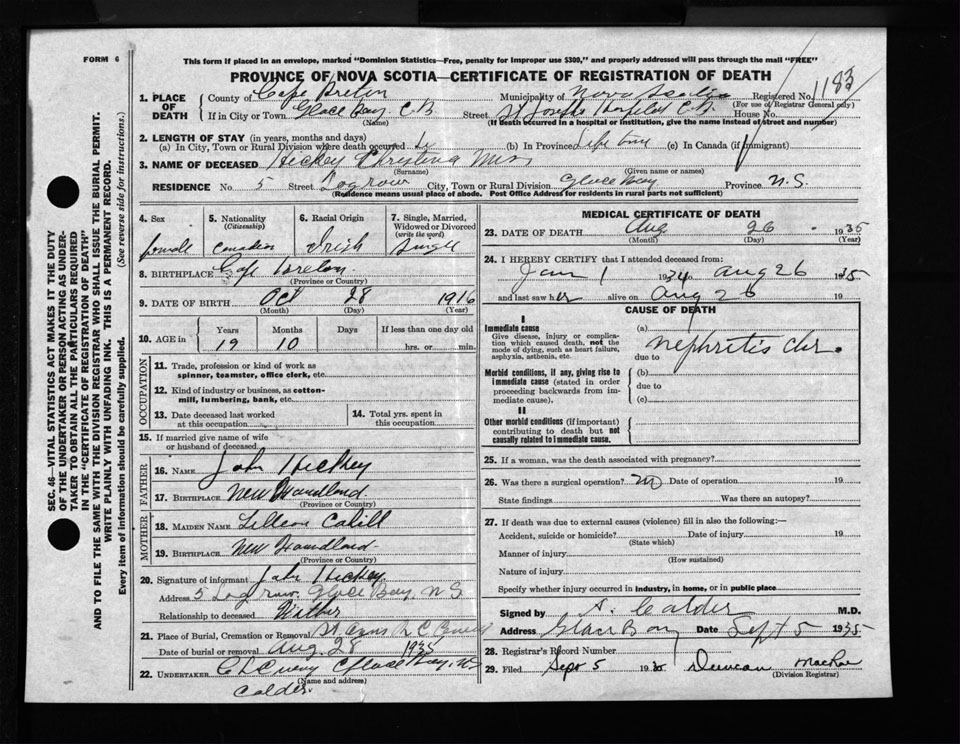 FORM 6
This form if placed in an envelope, marked "Dominion Statistics—Free, penalty for improper use $300," and properly addressed will pass through the mail "FREE"
PROVINCE OF NOVA SCOTIA—CERTIFICATE OF REGISTRATION OF DEATH
1183
1. PLACE OF DEATH
County of Cape Breton Municipality of Nova Scotia Registered No.
(For use of Registrar General only)
If in City or Town Glace Bay C.B. Street St Josephs Hospital C.B. House No.
(Name) (If death occurred in a hospital or institution, give the name instead of street and number)
2. LENGTH OF STAY (in years, months and days)
(a) In City, Town or Rural Division where death occurred (b) In Province life time (c) In Canada (if immigrant)
3. NAME OF DECEASED Hickey Christina Miss
(Surname) (Given name or names)
RESIDENCE No. 5 Street Logrow City, Town or Rural Division Glace Bay Province N.S.
(Residence means usual place of abode. Post Office Address for residents in rural parts not sufficient)
4. Sex female
5. Nationality (Citizenship) Canadian
6. Racial Origin Irish
7. Single, Married, Widowed or Divorced (write the word) Single
8. BIRTHPLACE Cape Breton
(Province or Country)
9. DATE OF BIRTH Oct 28 1916
(Month) (Day) (Year)
10. AGE in
Years Months Days If less than one day old
19 10 hrs. or min.
OCCUPATION
11. Trade, profession or kind of work as spinner, teamster, office clerk, etc.
12. Kind of industry or business, as cotton-mill, lumbering, bank, etc.
13. Date deceased last worked at this occupation
14. Total yrs. spent in this occupation
15. If married give name of wife or husband of deceased
FATHER
16. NAME John Hickey
17. BIRTHPLACE New Foundland
(Province or Country)
MOTHER
18. MAIDEN NAME Lilleon Cahill
19. BIRTHPLACE New Foundland
(Province or Country)
20. Signature of informant John Hickey
Address 5 Logrow Glace Bay N S
Relationship to deceased Father
21. Place of Burial, Cremation or Removal St. Anns R. C.
Date of burial or removal Aug. 28 1935
22. UNDERTAKER Glace Bay, N.S.
(Name and address)
Calder.
MEDICAL CERTIFICATE OF DEATH
23. DATE OF DEATH Aug 26 1935
(Month) (Day) (Year)
24. I HEREBY CERTIFY that I attended deceased from:
Jan 1 1934 to Aug 26 1935
and last saw her alive on Aug 26 19
CAUSE OF DEATH
I
Immediate cause
Give disease, injury or complication which caused death, not the mode of dying, such as heart failure, asphyxia, asthenia, etc.
(a) nephritis chr.
due to
Morbid conditions, if any, giving rise to immediate cause (stated in order proceeding backwards from immediate cause).
(b)
due to
(c)
II
Other morbid conditions (if important) contributing to death but not causally related to immediate cause.
25. If a woman, was the death associated with pregnancy?
26. Was there a surgical operation? no Date of operation 19
State findings Was there an autopsy?
27. If death was due to external causes (violence) fill in also the following:—
Accident, suicide or homicide? Date of injury 19
(State which)
Manner of injury
(How sustained)
Nature of injury
Specify whether injury occurred in industry, in home, or in public place
Signed by A. Calder M.D.
Address Glace Bay Date Sept 5 1935
28. Registrar's Record Number
29. Filed Sept 5 1935 Duncan MacRae
(Division Registrar)
SEC. 46—VITAL STATISTICS ACT MAKES IT THE DUTY
OF THE UNDERTAKER OR PERSON ACTING AS UNDER-
TAKER TO OBTAIN ALL THE PARTICULARS REQUIRED
IN THE "CERTIFICATE OF REGISTRATION OF DEATH"
AND TO FILE THE SAME WITH THE DIVISION REGISTRAR WHO SHALL ISSUE THE BURIAL PERMIT.
WRITE PLAINLY WITH UNFADING INK. THIS IS A PERMANENT RECORD.
Every item of information should be carefully supplied. (See reverse side for instructions.)